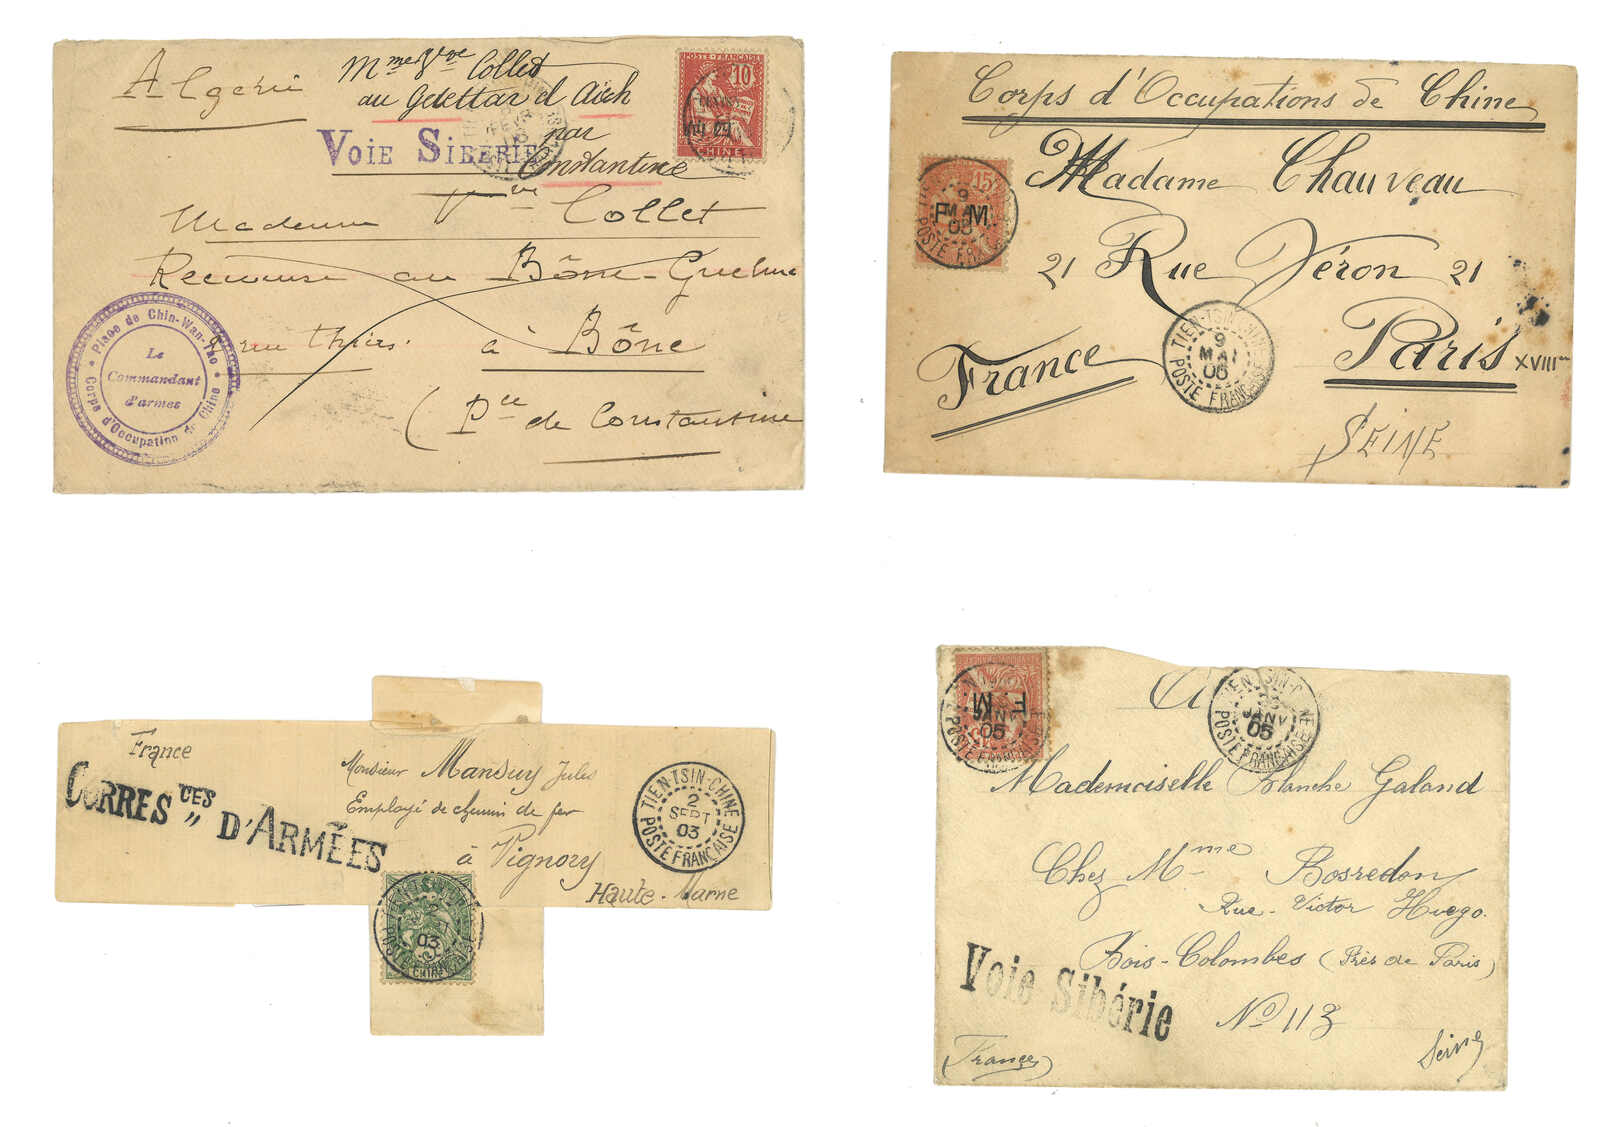 Algérie
Mme Vve Collet
au Guettar el Aich
par
Constantine
VOIE SIBÉRIE
POSTE FRANÇAISE
10
CHINE
FEVR
Madame Vve Collet
Receveuse au Bône-Guelma
rue Thiers à Bône
(Pce de Constantine
Place de Chin-Wan-Tao
Le
Commandant
d'armes
Corps d'Occupation de Chine
Corps d'Occupations de Chine
15
F. M.
9
MAI
POSTE FRANÇAISE
Madame Chauveau
21 Rue Véron 21
Paris XVIIIme
France
SEINE
TIEN-TSIN-CHINE
9
MAI
06
POSTE FRANÇAISE
France
CORRESCES D'ARMÉES
Monsieur Mansuy Jules
Employé de chemin de fer
à Vignory
Haute-Marne
TIEN-TSIN-CHINE
2
SEPT
03
POSTE FRANÇAISE
TIEN-TSIN-CHINE
2
03
POSTE FRANÇAISE
CHINE
F. M
JANV
05
POSTE FRANÇAISE
TIEN-TSIN-CHINE
JANV
05
POSTE FRANÇAISE
Mademoiselle Blanche Galand
Chez Mme Bosredon
Rue-Victor Huego.
Bois-Colombes (Près de Paris)
No 113
Seine
Voie Sibérie
(France)